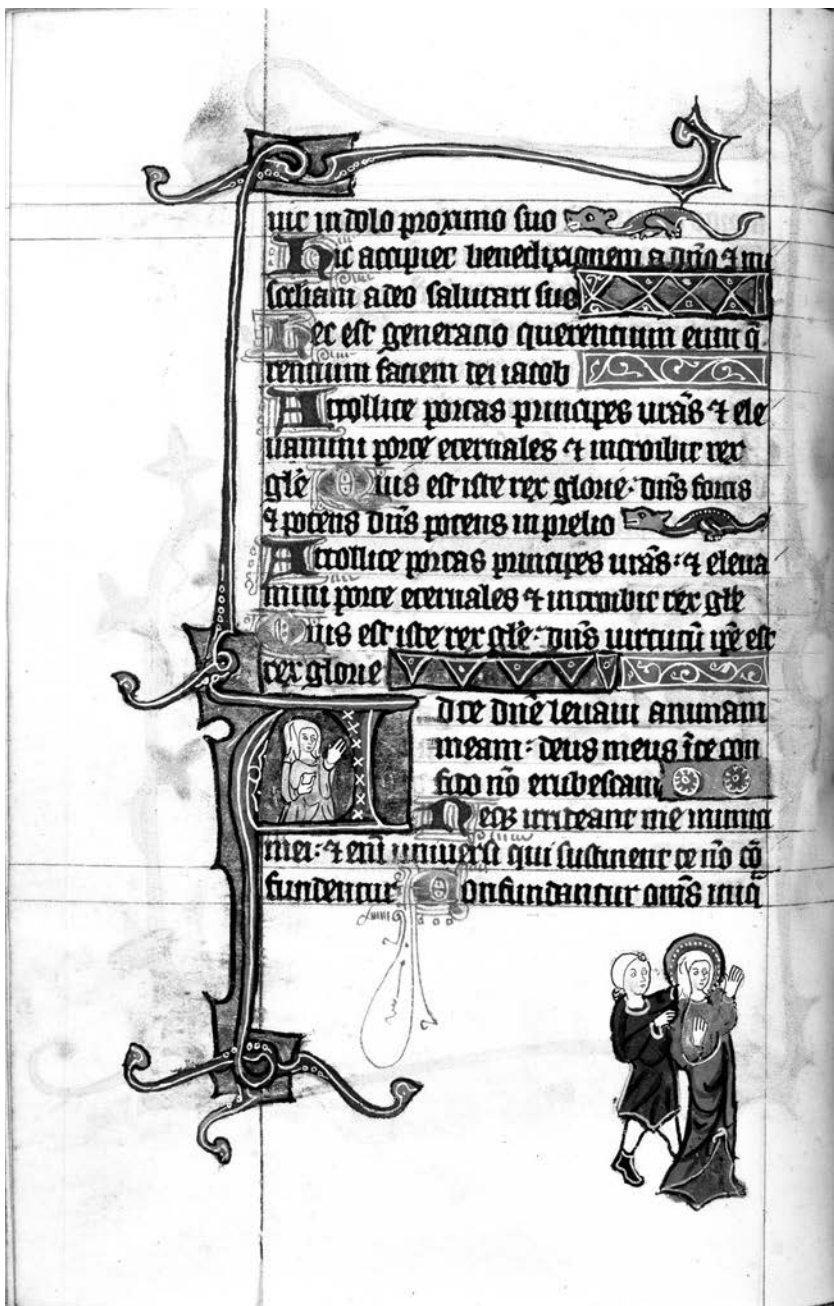 uit in dolo proximo suo
Hic accipiet benedixionem a dño ⁊ mi
scďiam a deo salutari suo
Hec est generacio querencium eum q̃
rencium faciem dei iacob
Attollite portas principes urãs ⁊ ele
uamini porte eternales ⁊ introibit rex
glẽ Quis est iste rex glorie· dñs fortis
⁊ potens dñs potens in prelio
Attollite portas principes urãs· ⁊ eleua
mini porte eternales ⁊ introibit rex glẽ
Quis est iste rex glẽ· dñs uirtutũ ip̃e est
rex glorie
Ad te dñe leuaui animam
meam· deus meus ĩ te con
fido nõ erubescam
Neq irrideant me inimici
mei· ⁊ eñi uniuersi qui sustinent te nõ cõ
fundentur Confundantur omẽs iniq̃